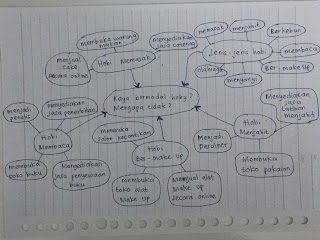 membuka warung
makan
menyediakan
jasa catering
menjual
cake
secara online
Hobi Memasak
memasak
menjahit
Berkebun
Jenis-jenis hobi
membaca
Ber-make up
menyanyi
olahraga
Kaya bermodal hoby?
Mengapa tidak?
menjadi
penulis
menyediakan
jasa penerbitan
Hobi
Membaca
membuka
toko buku
Menyediakan
jasa penyewaan
buku
membuka
salon kecantikan
Hobi
Ber-make up
membuka
toko alat
Make up
Menjual alat
Make up
secara online
Menyediakan
jasa
latihan
menjahit
Hobi
Menjahit
Menjadi
Desainer
Membuka
toko pakaian